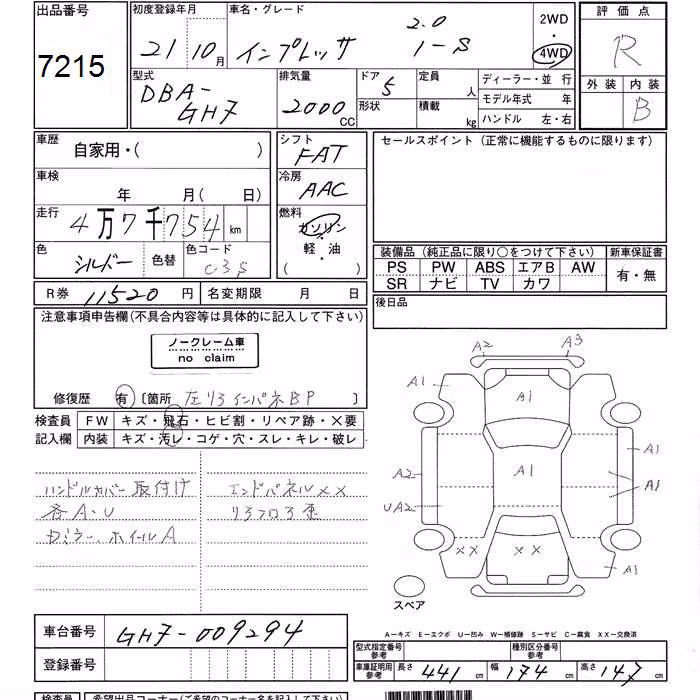 出品番号
7215
初度登録年月
21年10月
車名・グレード
インプレッサ 2.0 i-S
2WD
・
4WD
評価点
R
外装 内装
B
型式
DBA-
GH7
排気量
2000
CC
ドア
5
形状
定員
人
積載
kg
ディーラー・並 行
モデル年式 年
ハンドル 左・右
車歴
自家用・( )
車検
年 月( 日)
走行
4万7千754km
色
シルバー
色替
色コード
C3S
シフト
FAT
冷房
AAC
燃料
ガソリン
・
軽・油
( )
セールスポイント(正常に機能するものに限ります)
装備品(純正品に限り〇をつけて下さい) 新車保証書
PS PW ABS エアB AW
SR ナビ TV カワ
有・無
R券 11520円
名変期限 月 日
後日品
注意事項申告欄(不具合内容等は具体的に記入して下さい)
ノークレーム車
no claim
修復歴 有 〔箇所 左リヨインパネBP 〕
検査員
記入欄
FW キズ・飛石・ヒビ割・リペア跡・X要
内装 キズ・汚レ・コゲ・穴・スレ・キレ・破レ
ハンドルカバー取付け
各A・U
ホイールA
エンドパネルXX
リヨフロヨ歪
A2 A3
A1
A1
A1
A1
A2
A1
UA2
XX XX
A1
スペア
A―キズ E―エクボ U―凹み W―補修跡 S―サビ C―腐食 XX―交換済
車台番号 GH7-009294
登録番号
型式指定番号
参考
種類区分番号
参考
車庫証明用
参考
長さ 441cm 幅 174cm 高さ 147cm
検査員 希望出品コーナー(ご希望のコーナー名を記入下さい)